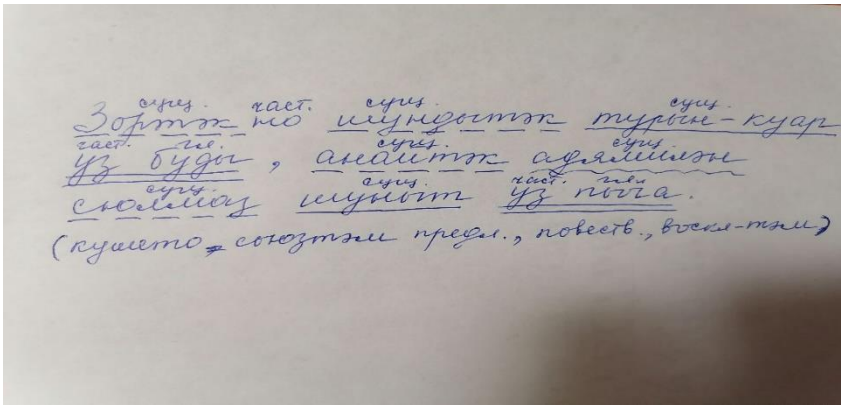 сущ. част. сущ. сущ.
Зортэк но шундытэк турын-куар
част. гл. сущ. сущ.
уз буды, анаитэк адямилэн
сущ. сущ. част. гл.
сюлмаз шуныт уз пыча.
(кушето, союзтэм предл., повеств., воскл-тэм)